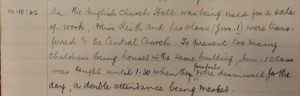 14.12.43 As the English Church Hall was being used for a sale
of work, Miss Keith and her class (Jun. I) were trans-
ferred to the Central Church. To prevent too many
children being housed in the same building, Jun. I class
was taught until 1.30 when they were dismissed for the
day, a double attendance being marked.